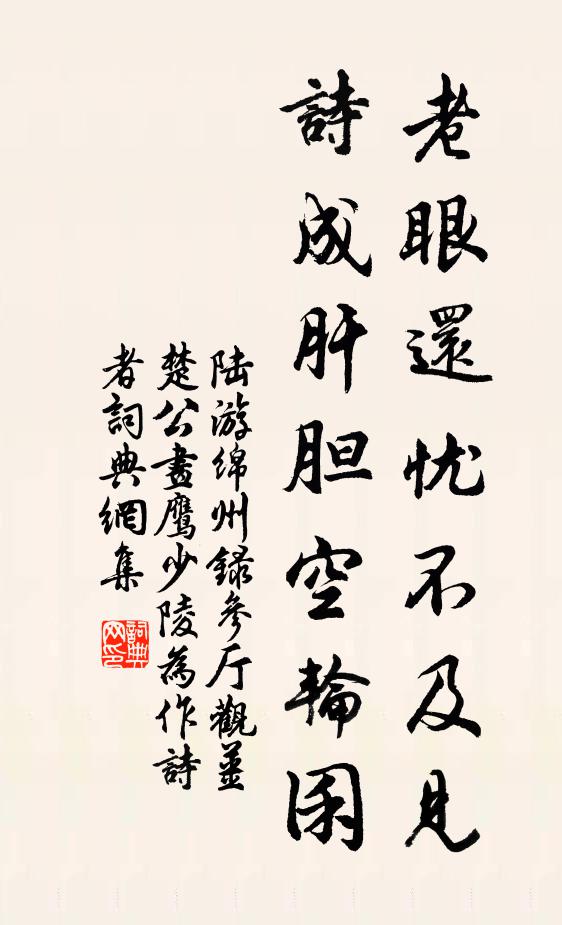 老眼還忧不及見
詩成肝胆空輪囷
陆游綿州録參厅觀姜
楚公畫鷹少陵為作詩
者詞典網集
詞典
网印